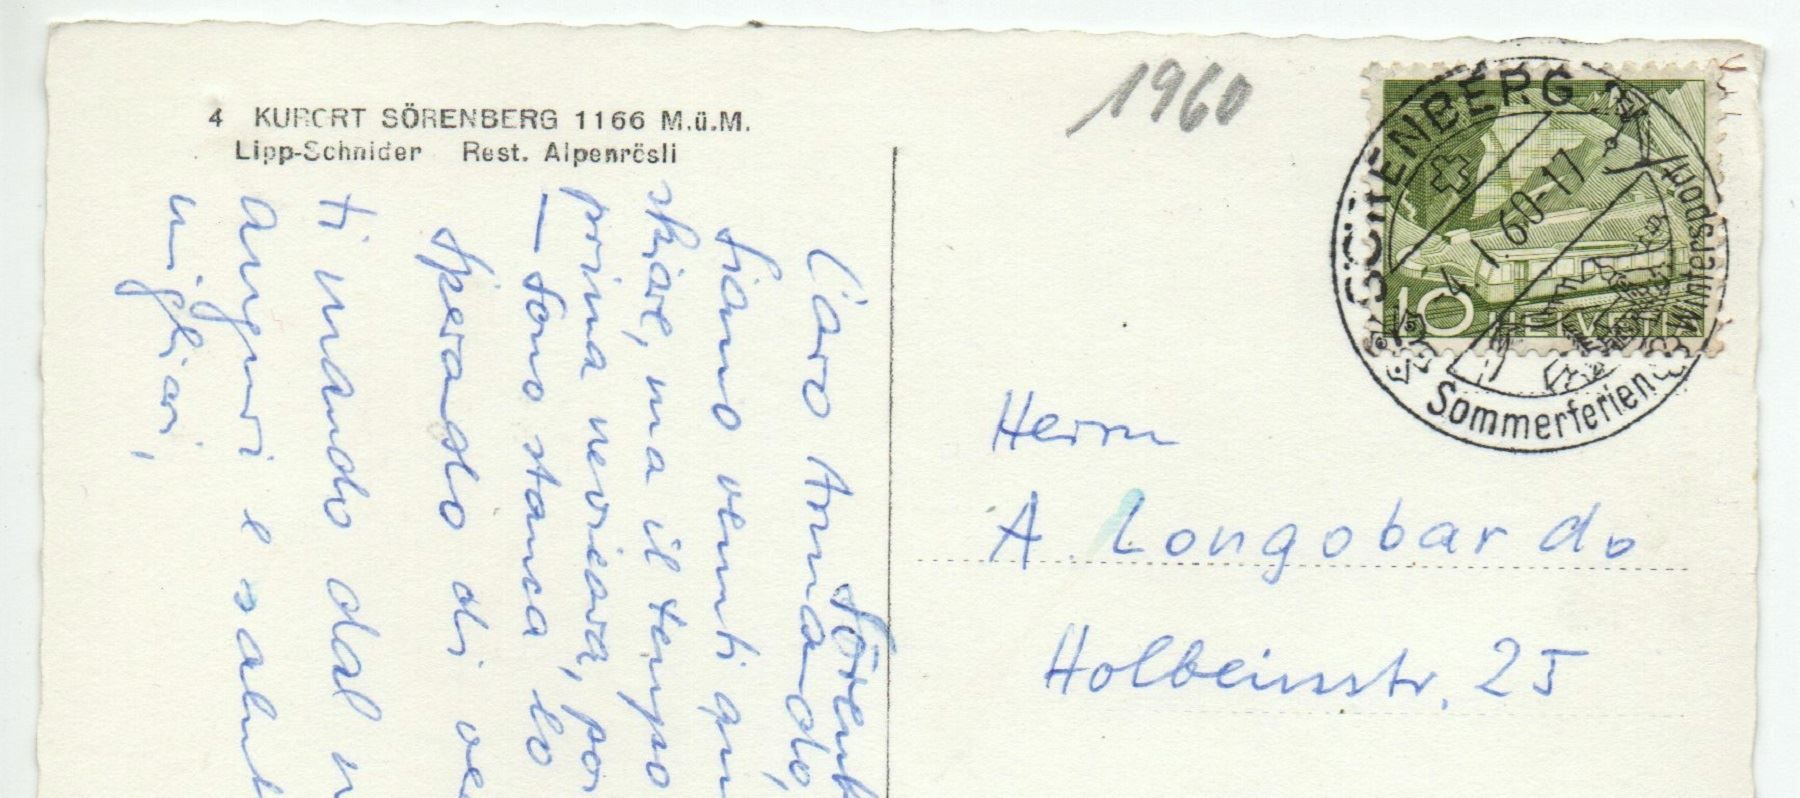 4 KURORT SÖRENBERG 1166 M.ü.M.
Lipp-Schnider Rest. Alpenrösli
1960
SÖRENBERG
4. 1. 60-17
Wintersport
Sommerferien
10 HELVETIA
Herrn
A. Longobardo
Holbeinstr. 25
Sörenb
Caro Armando,
siamo venuti qui
skiare, ma il tempo
prima nevicava, poi
— sono stanca lo
Sperando di
ti mando dal
auguri e salut
migliori,